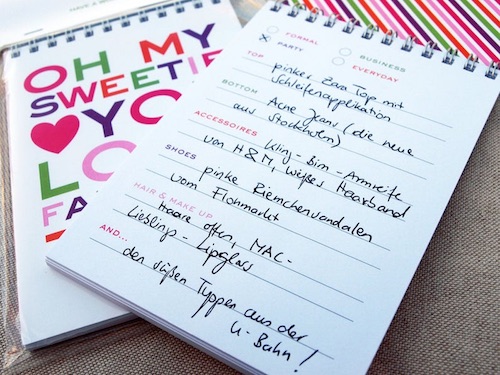 OH MY
SWEETIE
YO
LO
FA
FORMAL
BUSINESS
x PARTY
EVERYDAY
TOP
pinker Zara Top mit
Schleifenapplikation
BOTTOM
Acne Jeans (die neue
aus Stockholm)
ACCESSOIRES
Kling-Bim-Armreife
von H&M, weißes Haarband
SHOES
pinke Riemchensandalen
vom Flohmarkt
HAIR & MAKE UP
Haare offen, MAC-
Lieblings-Lipglass
AND...
den süßen Typpen aus der
U-Bahn!